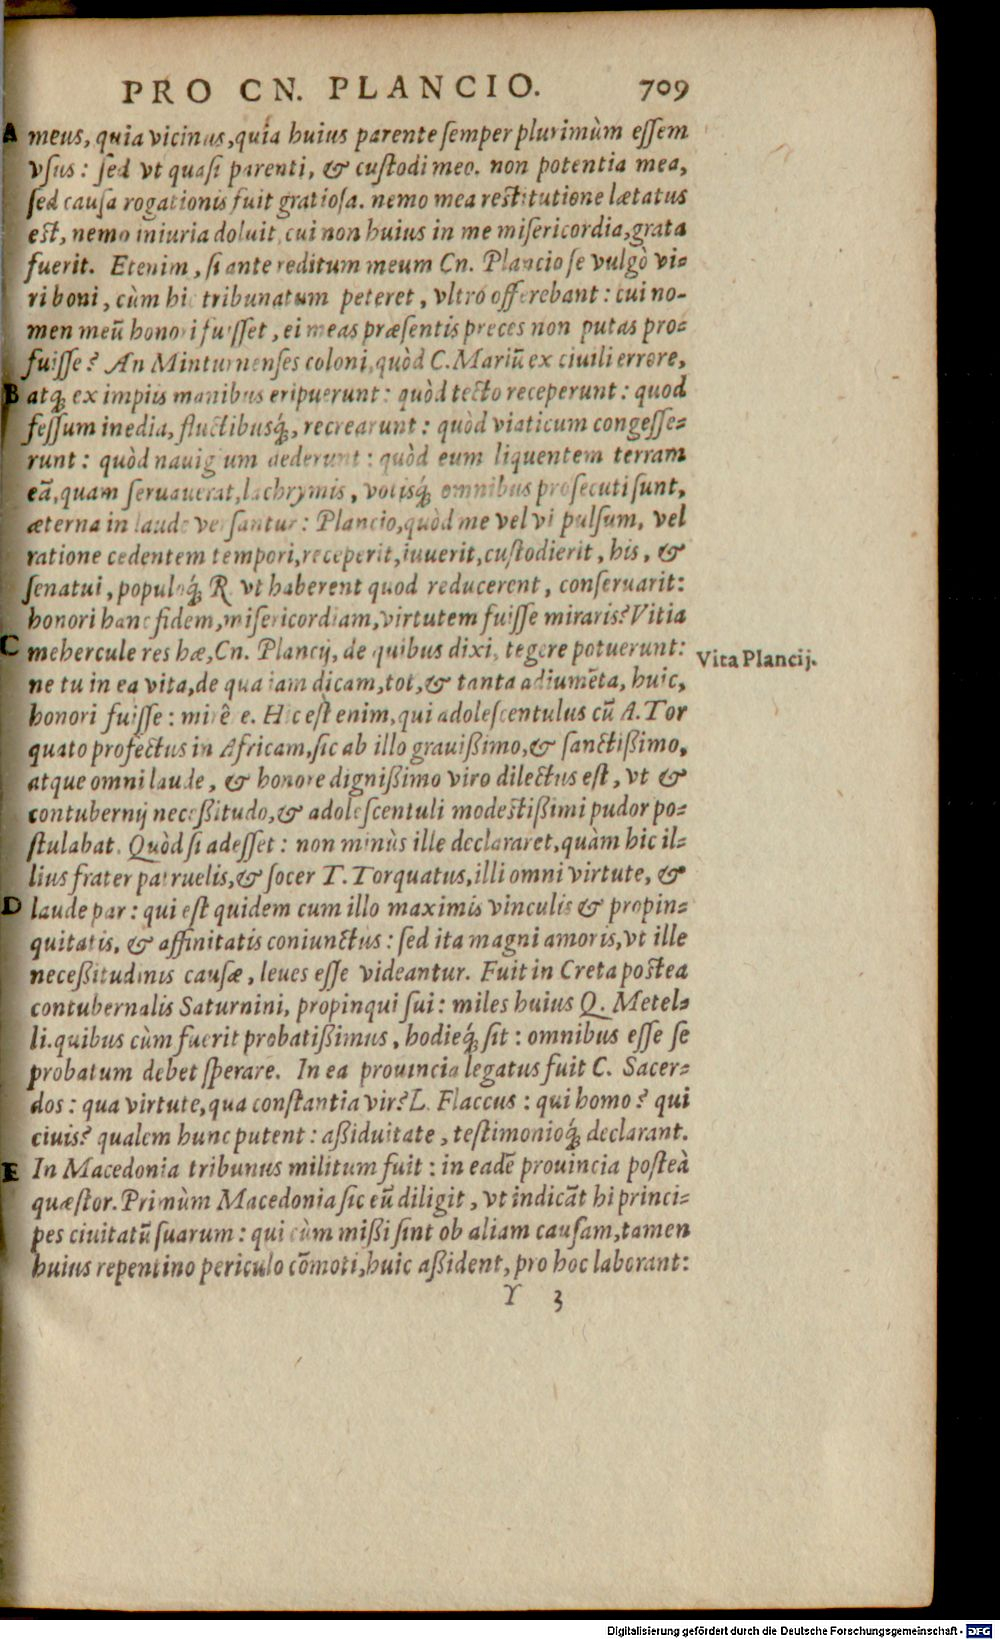 PRO CN. PLANCIO. 709
A meus, quia vicinus, quia huius parente semper plurimùm essem
vsus: sed vt quasi parenti, & custodi meo. non potentia mea,
sed causa rogationis fuit gratiosa. nemo mea restitutione lætatus
est, nemo iniuria doluit, cui non huius in me misericordia, grata
fuerit. Etenim, si ante reditum meum Cn. Plancio se vulgò vi-
ri boni, cùm hic tribunatum peteret, vltro offerebant: cui no-
men meū honori fuisset, ei meas præsentis preces non putas pro-
fuisse? An Minturnenses coloni, quòd C. Mariū ex ciuili errore,
B atq́; ex impiis manibus eripuerunt: quòd tecto receperunt: quod
fessum inedia, fluctibusq́;, recrearunt: quòd viaticum congesse-
runt: quòd nauigium dederunt: quòd eum liquentem terram
eā, quam seruauerat, lachrymis, votisq́; omnibus prosecuti sunt,
æterna in laude versantur: Plancio, quòd me vel vi pulsum, vel
ratione cedentem tempori, receperit, iuuerit, custodierit, his, &
senatui, populoq́; R. vt haberent quod reducerent, conseruarit:
honori hanc fidem, misericordiam, virtutem fuisse miraris? Vitia
C mehercule res hæ, Cn. Plancij, de quibus dixi, tegere potuerunt:
Vita Plancij.
ne tu in ea vita, de qua iam dicam, tot, & tanta adiumēta, huic,
honori fuisse: mirêre. Hic est enim, qui adolescentulus cū A. Tor
quato profectus in Africam, sic ab illo grauißimo, & sanctißimo,
atque omni laude, & honore dignißimo viro dilectus est, vt &
contubernij neceßitudo, & adolescentuli modestißimi pudor po-
stulabat. Quòd si adesset: non minùs ille declararet, quàm hic il-
lius frater patruelis, & socer T. Torquatus, illi omni virtute, &
D laude par: qui est quidem cum illo maximis vinculis & propin-
quitatis, & affinitatis coniunctus: sed ita magni amoris, vt ille
neceßitudinis causæ, leues esse videantur. Fuit in Creta postea
contubernalis Saturnini, propinqui sui: miles huius Q. Metel-
li. quibus cùm fuerit probatißimus, hodieq́; sit: omnibus esse se
probatum debet sperare. In ea prouincia legatus fuit C. Sacer-
dos: qua virtute, qua constantia vir? L. Flaccus: qui homo? qui
ciuis? qualem hunc putent: aßiduitate, testimonioq́; declarant.
E In Macedonia tribunus militum fuit: in eadē prouincia posteà
quæstor. Primùm Macedonia sic eū diligit, vt indicāt hi princi-
pes ciuitatū suarum: qui cùm mißi sint ob aliam causam, tamen
huius repentino periculo cōmoti, huic aßident, pro hoc laborant:
Y 3
Digitalisierung gefördert durch die Deutsche Forschungsgemeinschaft - DFG